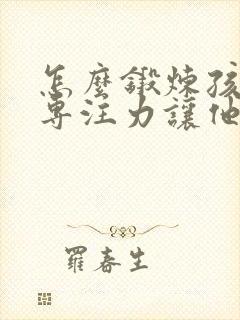 怎麼鍛煉孩
專注力讓他
羅春生